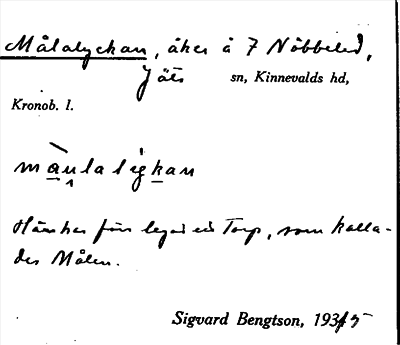 Målalyckan, åker å 7 Nöbbeled,
Jäts sn, Kinnevalds hd,
Kronob. l.
maulalygkan
Här har förr legat ett Torp, som kalla-
des Målen.
Sigvard Bengtson, 1935